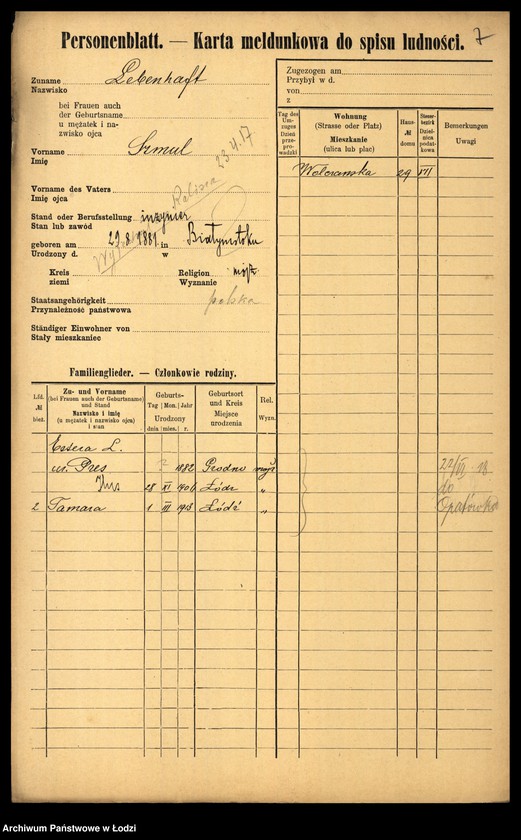 Personenblatt. — Karta meldunkowa do spisu ludności. 7
Zuname Lebenhaft
Nazwisko
bei Frauen auch
der Geburtsname
u mężatek i na-
zwisko ojca
Vorname Szmul
Imię
23.4.17
Vorname des Vaters
Imię ojca
Stand oder Berufsstellung inżynier
Stan lub zawód
geboren am 29 8 1881 in Białymstoku
Urodzony d. w
Kreis Religion mojż
ziemi Wyznanie
Staatsangehörigkeit polska
Przynależność państwowa
Ständiger Einwohner von
Stały mieszkaniec
Zugezogen am
Przybył w d.
von
z
Tag des Um-zuges Dzień prze-prowadzki
Wohnung
(Strasse oder Platz)
Mieszkanie
(ulica lub plac)
Haus-
№
domu
Steuer-bezirk Dziel-nica podat-kowa
Bemerkungen
Uwagi
29 VII
Familienglieder. — Członkowie rodziny.
Lfd.
№
bież.
Zu- und Vorname
(bei Frauen auch der Geburtsname)
und Stand
Nazwisko i imię
(u mężatek i nazwisko ojca)
i stan
Geburts-
Tag Mon. Jahr
Urodzony
dnia mies. r.
Geburtsort
und Kreis
Miejsce
urodzenia
Rel.
Wyzn.
Estera L.
ur. Pres ? 1882 Grodno mojż
28 XI 1906 Łódź "
2 Tamara 1 III 1913 Łódź "
22/VI 18
do
Opatówka
Archiwum Państwowe w Łodzi